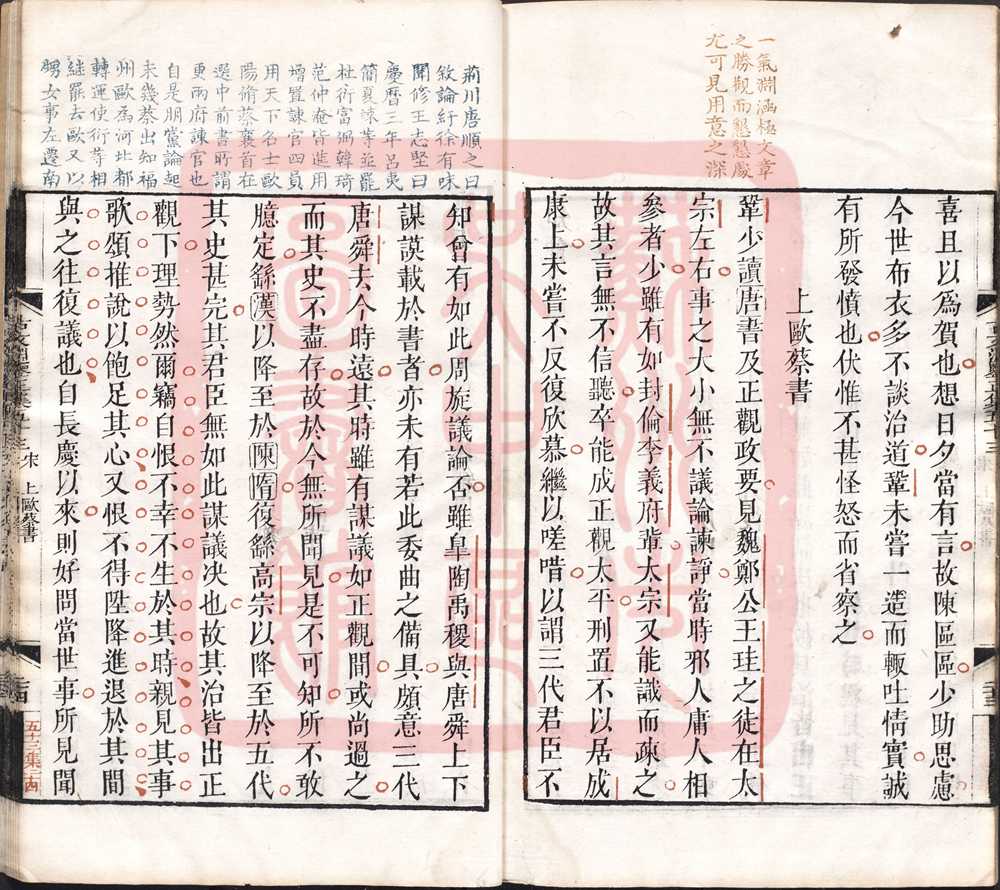 一氣渊涵極文章
之勝觀而懇懇處
尤可見用意之深
喜且以爲賀也想日夕當有言故陳區區少助思慮
今世布衣多不談治道鞏未嘗一造而輙吐情實誠
有所發憤也伏惟不甚怪怒而省察之
上歐蔡書
鞏少讀唐書及正觀政要見魏鄭公王珪之徒在太
宗左右事之大小無不議論諫諍當時邪人庸人相
參者少雖有如封倫李義府軰太宗又能識而疎之
故其言無不信聽卒能成正觀太平刑置不以居成
康上未嘗不反復欣慕繼以嗟唶以謂三代君臣不
荊川唐順之曰
敘論紆徐有味
聞修王志堅曰
慶曆三年呂夷
簡夏竦等並罷
杜衍富弼韓琦
范仲奄皆進用
增置諫官四員
用天下名士歐
陽脩蔡襄首在
選中前書所謂
更兩府諫官也
自是朋黨論起
未幾蔡出知福
州歐爲河北都
轉運使衍等相
継罷去歐又以
甥女事左遷南
知曾有如此周旋議論否雖臯陶禹稷與唐舜上下
謀謨載於書者亦未有若此委曲之備具頗意三代
唐舜去今時遠其時雖有謀議如正觀間或尚過之
而其史不盡存故於今無所聞見是不可知所不敢
臆定繇漢以降至於陳隋復繇高宗以降至於五代
其史甚完其君臣無如此謀議決也故其治皆出正
觀下理勢然爾竊自恨不幸不生於其時親見其事
歌頌推說以飽足其心又恨不得陞降進退於其間
與之往復議也自長慶以來則好問當世事所見聞
宋 上歐蔡書
五十三集 二十四